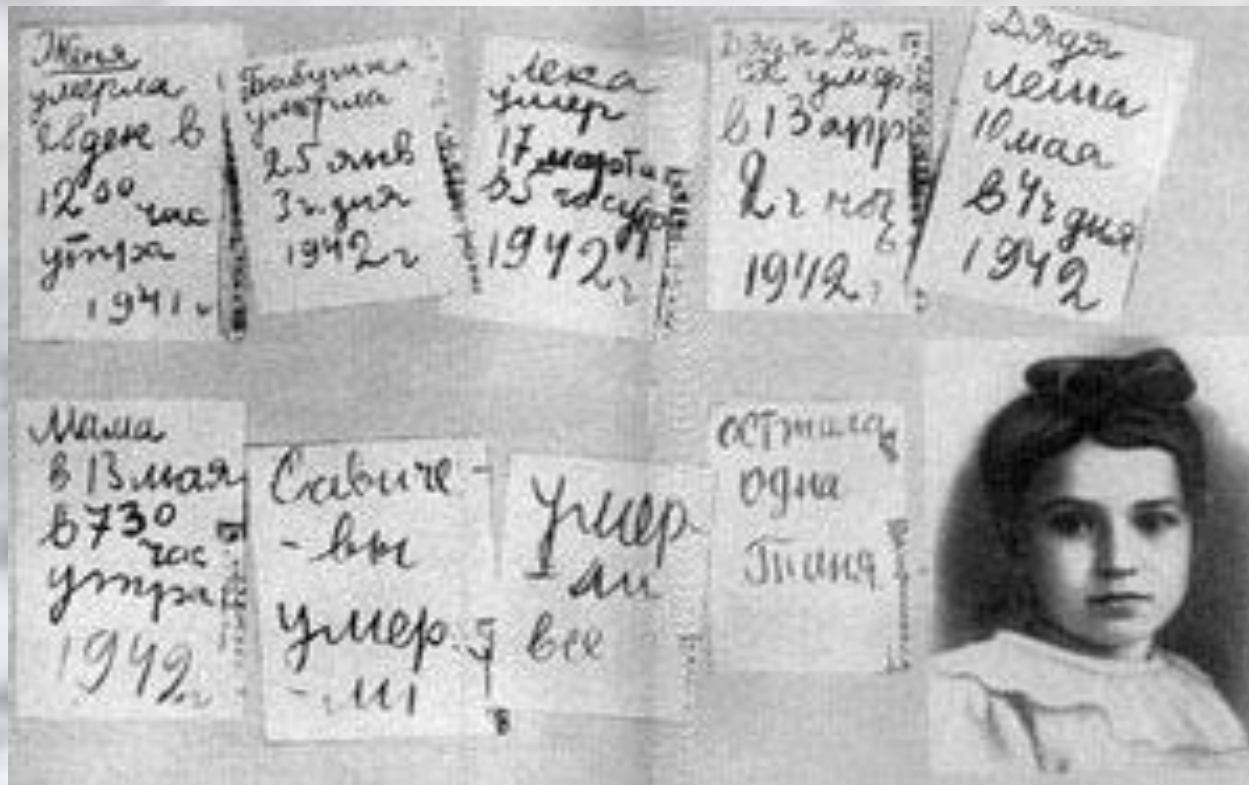 Женя
умерла
28 дек в
12 00 час
утра
1941 г
Бабушка
умерла
25 янв
3 ч. дня
1942 г
Лека
умер
17 марта
в 5 час утр
1942 г
Дядя Ва
ся умер
в 13 апр
2 ч ноч
1942 г
Дядя
Леша
10 мая
в 4 ч дня
1942
Мама
в 13 мая
в 7 30
час
утра
1942 г
Савиче-
-вы
умер-
-ли
Умер-
-ли
все
Осталась
одна
Таня